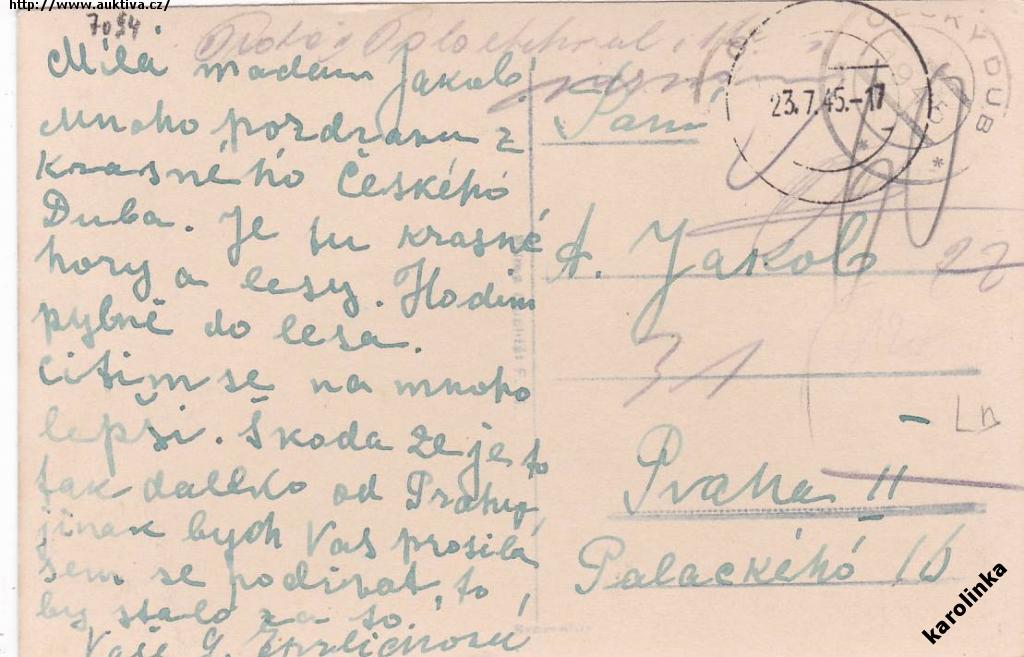 http://www.auktiva.cz/
7094
Milá madam Jakob!
Mnoho pozdravu z
krasného Českéhó
Duba. Je tu krasné
hory a lesy. Hodim
pybně do lesa.
Citim se na mnoho
lepši. Škoda že je to
tak daleko od Prahy,
jinak bych Vas prosila
sem se podivat, to
by stalo za to!
Vaše G.
Pani
A. Jakob
31
Praha II
Palackéhó 16
23.7.45.-17
ČESKÝ DUB
22
Ln
karolinka